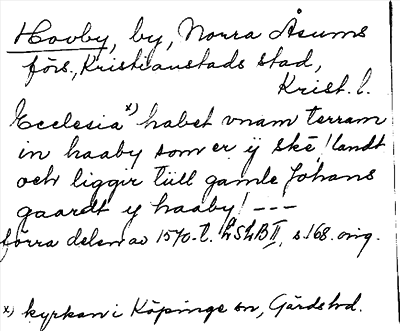 Hovby, by, Norra Åsums
förs., Kristianstads stad,
Krist. l.
Ecclesia x) habet vnam terram
in haaby som er ÿ ske! landt
och liggir tüll gamle Johans
gaardt y haaby! ---
förra delen av 1570-t. LSLB II, s. 168. orig.
x) kyrkan i Köpinge sn, Gärds hd.